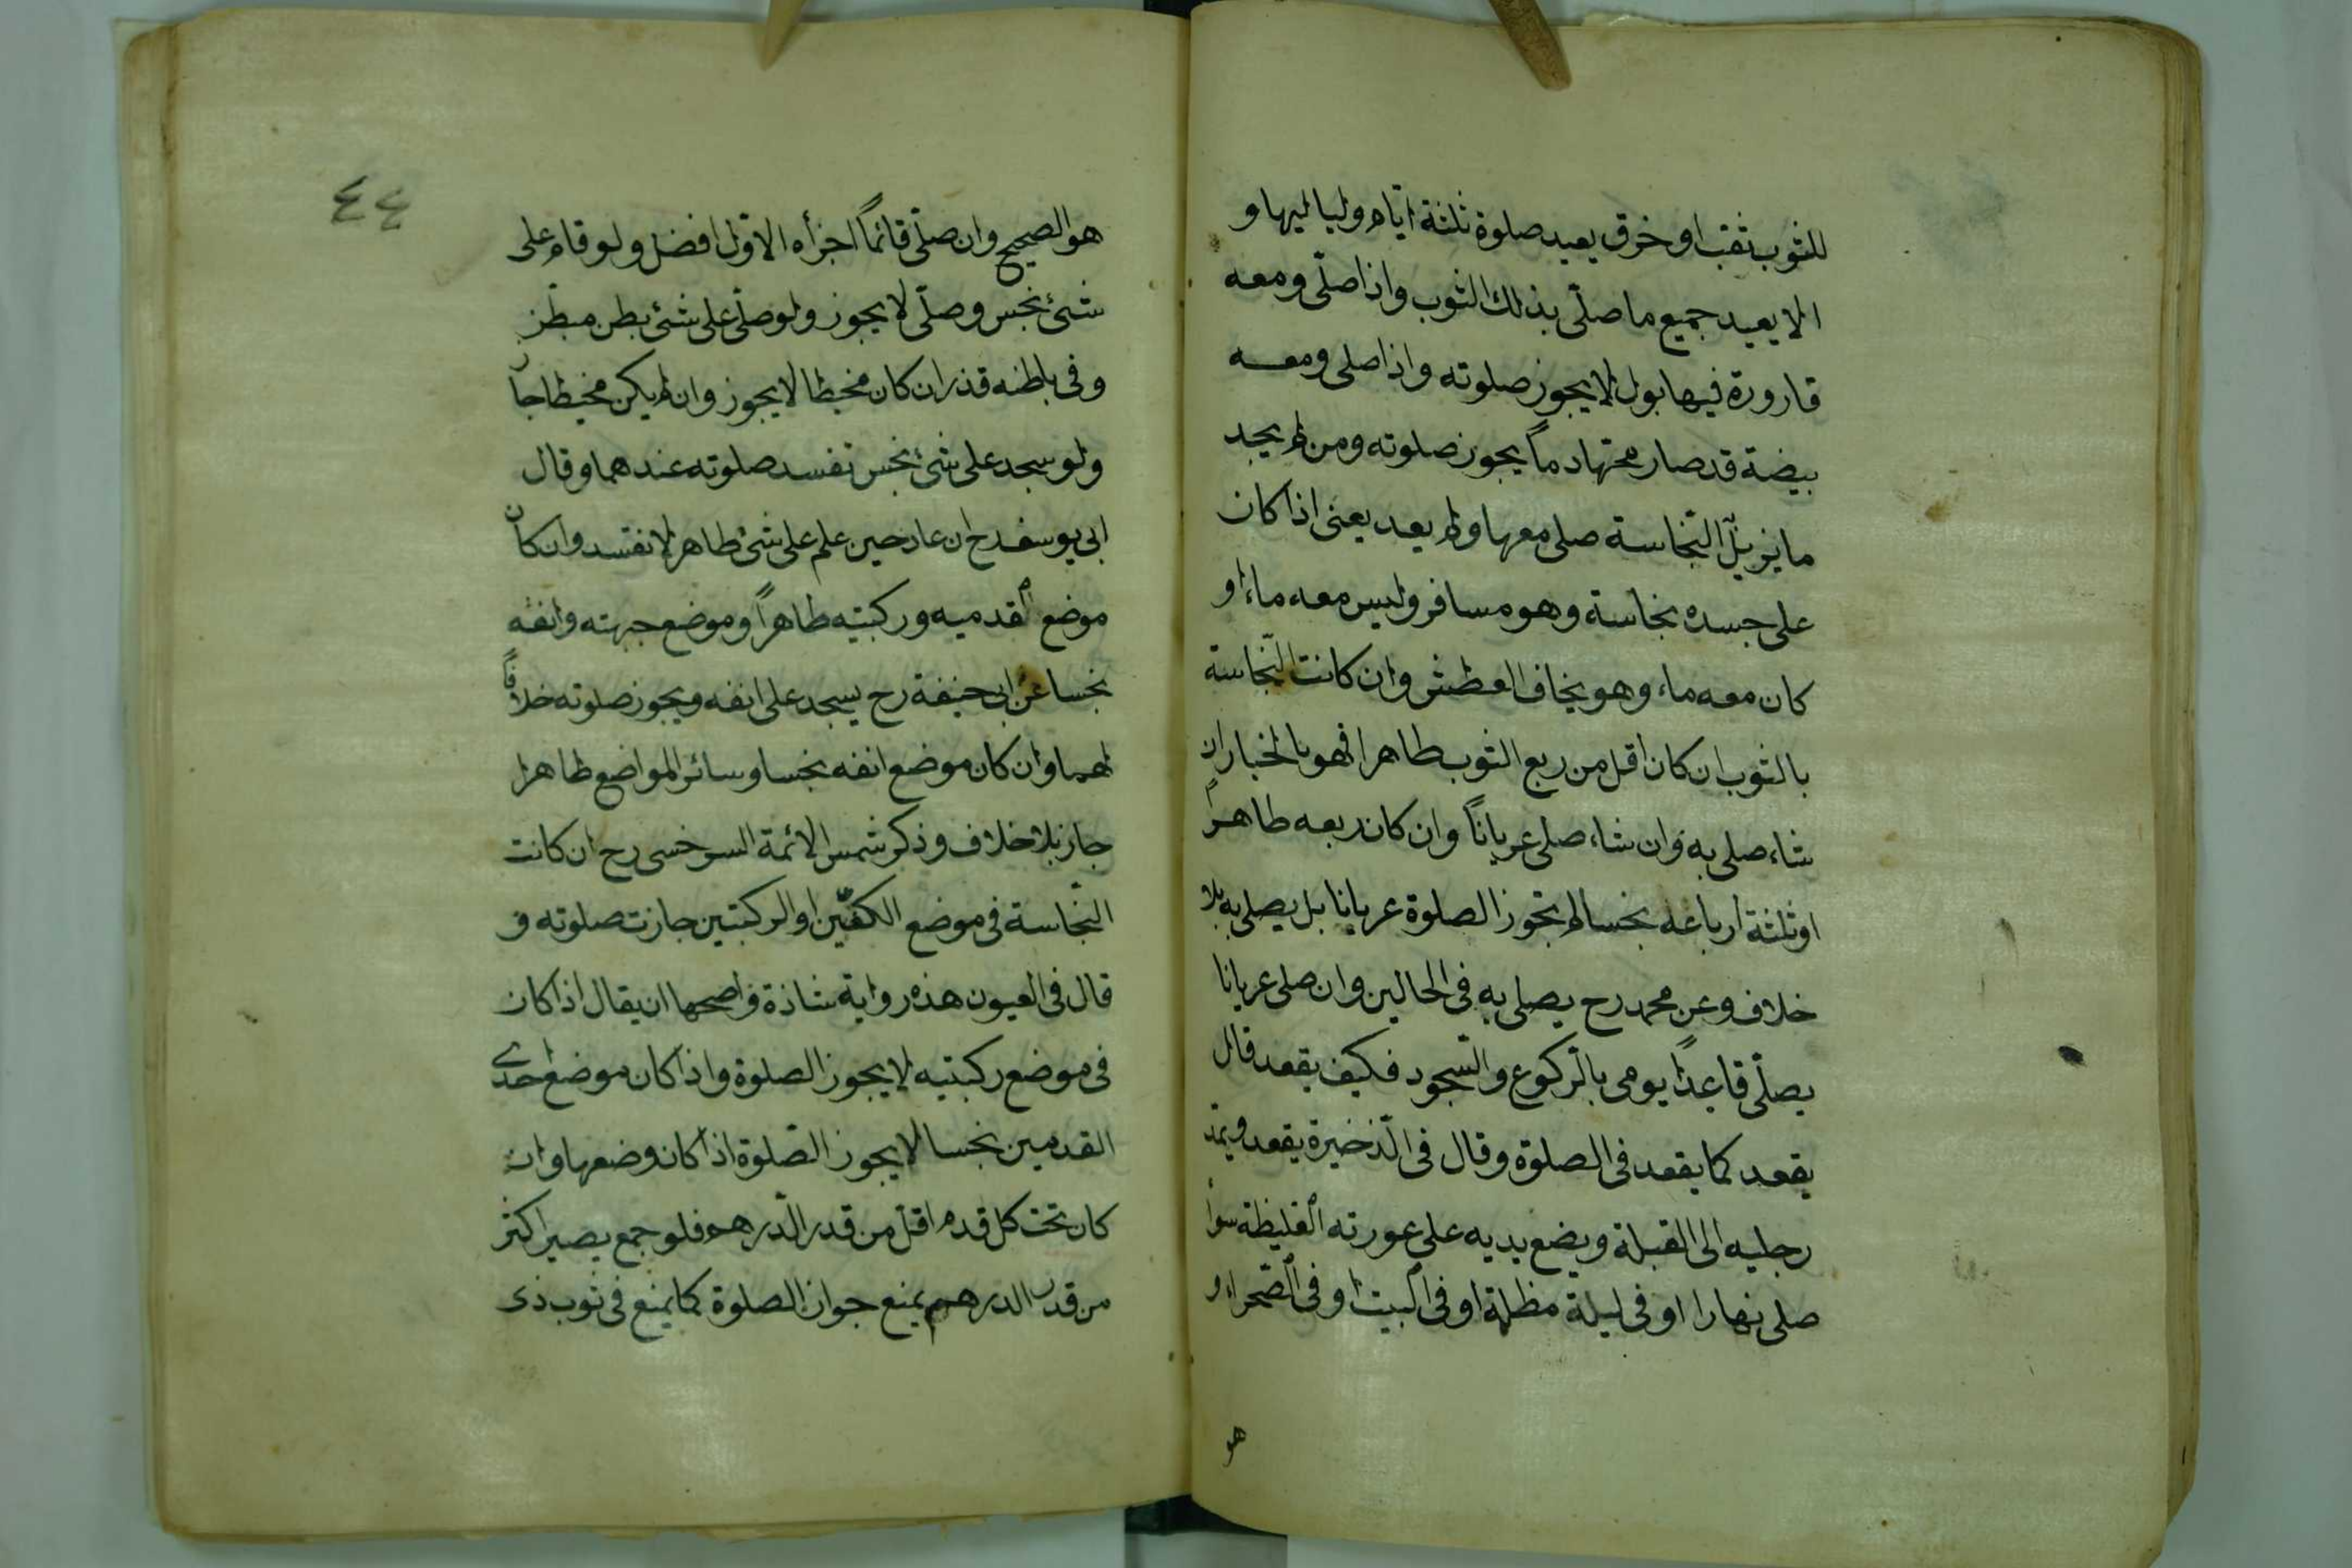 للثوب ثقب او خرق يعيد صلوة ثلثة ايام ولياليها و
الا يعيد جميع ما صلّى بذلك الثوب واذا صلّى ومعه
قارورة فيها بول لا يجوز صلوته واذا صلى ومعه
بيضة قد صار محتها دماً يجوز صلوته ومن لم يجد
ما يزيل النّجاسة صلى معها ولم يعد يعنى اذا كان
على جسده نجاسة وهو مسافر وليس معه ماء او
كان معه ماء وهو يخاف العطش وان كانت النّجاسة
بالثوب ان كان اقل من ربع الثوب طاهرا فهو بالخيار ان
شاء صلى به وان شاء صلى عرياناً وان كان ربعه طاهراً
او ثلثة ارباعه نجسا لم يتجوز الصلوة عريانا بل يصلى به بلا
خلاف وعن محمد رح يصلى به فى الحالين وان صلى عريانا
يصلّى قاعداً يومى بالرّكوع والسّجود فكيف يقعد قال
يقعد كما يقعد فى الصلوة وقال فى الذّخيرة يقعد ويمدّ
رجليه الى القبلة ويضع يديه على عورته الغليظة سواء
صلى نهارا او فى ليلة مظلمة او فى البيت او فى الصّحراء و
هو
٤٤
هو الصحيح وان صلّى قائماً اجزأه الاوّل افضل ولو قام على
شئ نجس وصلّى لا يجوز ولو صلّى على شئ بطن مبطّن
وفى باطنه قذر ان كان مخيطا لا يجوز وان لم يكن مخيطا جاز
ولو سجد على شئ نجس تفسد صلوته عندهما وقال
ابى يوسف رح ان عاد حين علم على شئ طاهر لا تفسد وان كان
موضع قدميه وركبتيه طاهراً وموضع جبهته وانفه
نجسا عن ابى حنيفة رح يسجد على انفه ويجوز صلوته خلافاً
لهما وان كان موضع انفه نجسا وسائر المواضع طاهرا
جاز بلا خلاف وذكر شمس الائمة السرخسى رح ان كانت
النّجاسة فى موضع الكفّين او الركبتين جازت صلوته و
قال فى العيون هذه رواية شاذة واصحها ان يقال اذا كان
فى موضع ركبتيه لا يجوز الصلوة واذا كان موضع احدى
القدمين نجسا لا يجوز الصّلوة اذا كان وضعها وان
كان تحت كل قدم اقل من قدر الدّرهم فلو جمع يصير اكثر
من قدر الدرهم يمنع جواز الصلوة كما يمنع فى ثوب ذى